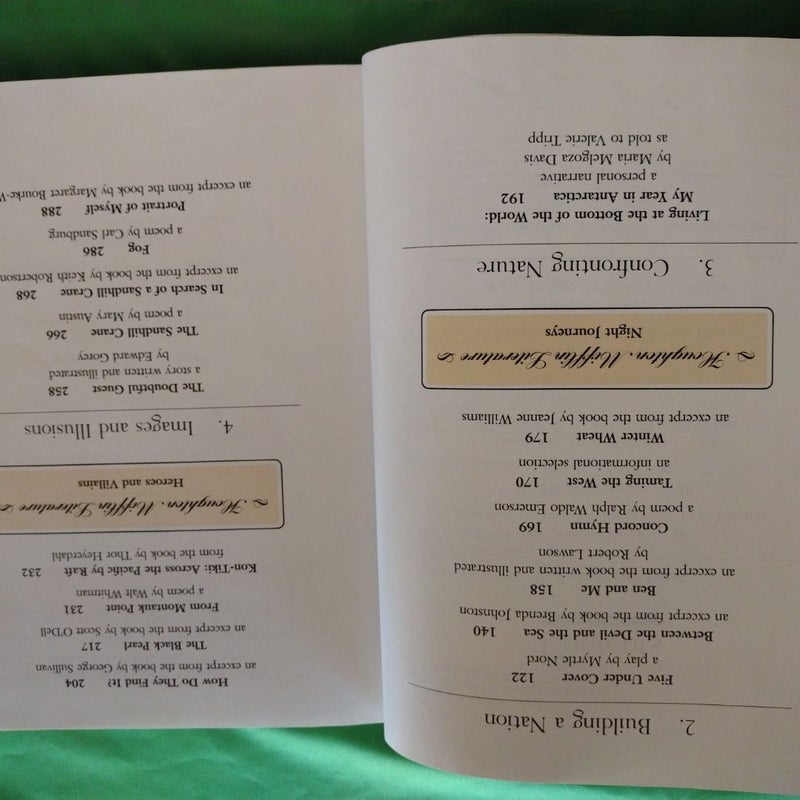 2. Building a Nation
Five Under Cover 122
a play by Myrtle Nord
Between the Devil and the Sea 140
an excerpt from the book by Brenda Johnston
Ben and Me 158
an excerpt from the book written and illustrated
by Robert Lawson
Concord Hymn 169
a poem by Ralph Waldo Emerson
Taming the West 170
an informational selection
Winter Wheat 179
an excerpt from the book by Jeanne Williams
Houghton Mifflin Literature
Night Journeys
3. Confronting Nature
Living at the Bottom of the World:
My Year in Antarctica 192
a personal narrative
by Maria Melgoza Davis
as told to Valerie Tripp
How Do They Find It? 204
an excerpt from the book by George Sullivan
The Black Pearl 217
an excerpt from the book by Scott O'Dell
From Montauk Point 231
a poem by Walt Whitman
Kon-Tiki: Across the Pacific by Raft 232
from the book by Thor Heyerdahl
Houghton Mifflin Literature
Heroes and Villains
4. Images and Illusions
The Doubtful Guest 258
a story written and illustrated
by Edward Gorey
The Sandhill Crane 266
a poem by Mary Austin
In Search of a Sandhill Crane 268
an excerpt from the book by Keith Robertson
Fog 286
a poem by Carl Sandburg
Portrait of Myself 288
an excerpt from the book by Margaret Bourke-W